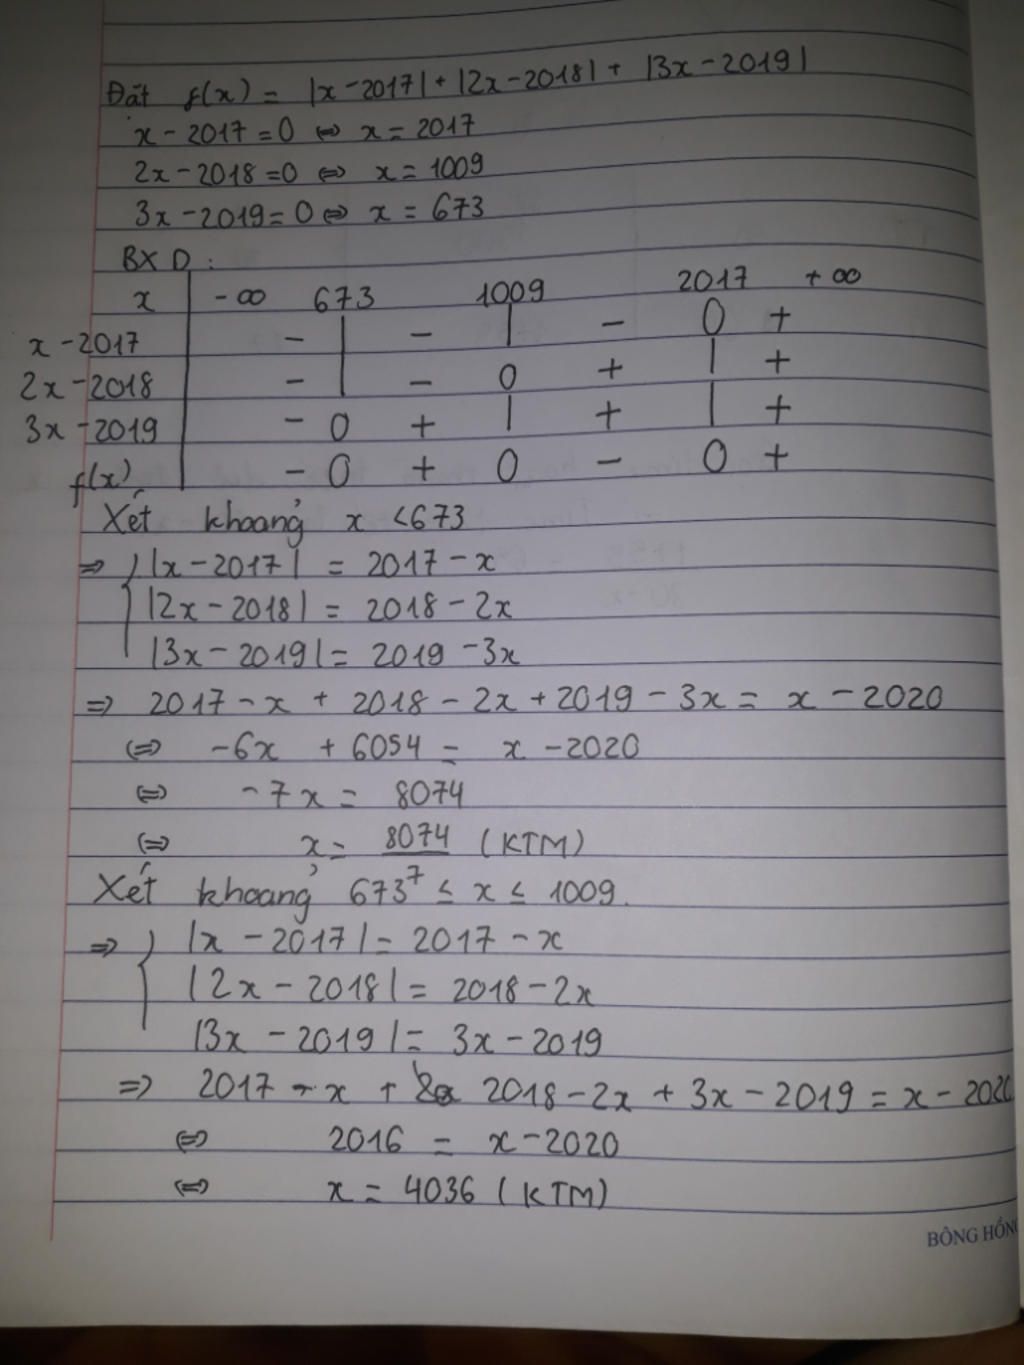 Đặt f(x) = |x-2017| + |2x-2018| + |3x-2019|
x - 2017 = 0 ⇔ x = 2017
2x - 2018 = 0 ⇔ x = 1009
3x - 2019 = 0 ⇔ x = 673
BXD:
x | -∞ 673 1009 2017 +∞
x - 2017 | - | - | - 0 +
2x - 2018 | - | - 0 + | +
3x - 2019 | - 0 + | + | +
f(x) | - 0 + 0 - 0 +
Xét khoảng x < 673
⇒ { |x - 2017| = 2017 - x
|2x - 2018| = 2018 - 2x
|3x - 2019| = 2019 - 3x
⇒ 2017 - x + 2018 - 2x + 2019 - 3x = x - 2020
⇔ -6x + 6054 = x - 2020
⇔ -7x = 8074
⇔ x = 8074/7 (KTM)
Xét khoảng 673 ≤ x ≤ 1009.
⇒ { |x - 2017| = 2017 - x
|2x - 2018| = 2018 - 2x
|3x - 2019| = 3x - 2019
⇒ 2017 - x + 2018 - 2x + 3x - 2019 = x - 2020
⇔ 2016 = x - 2020
⇔ x = 4036 (KTM)
BÔNG HỒNG